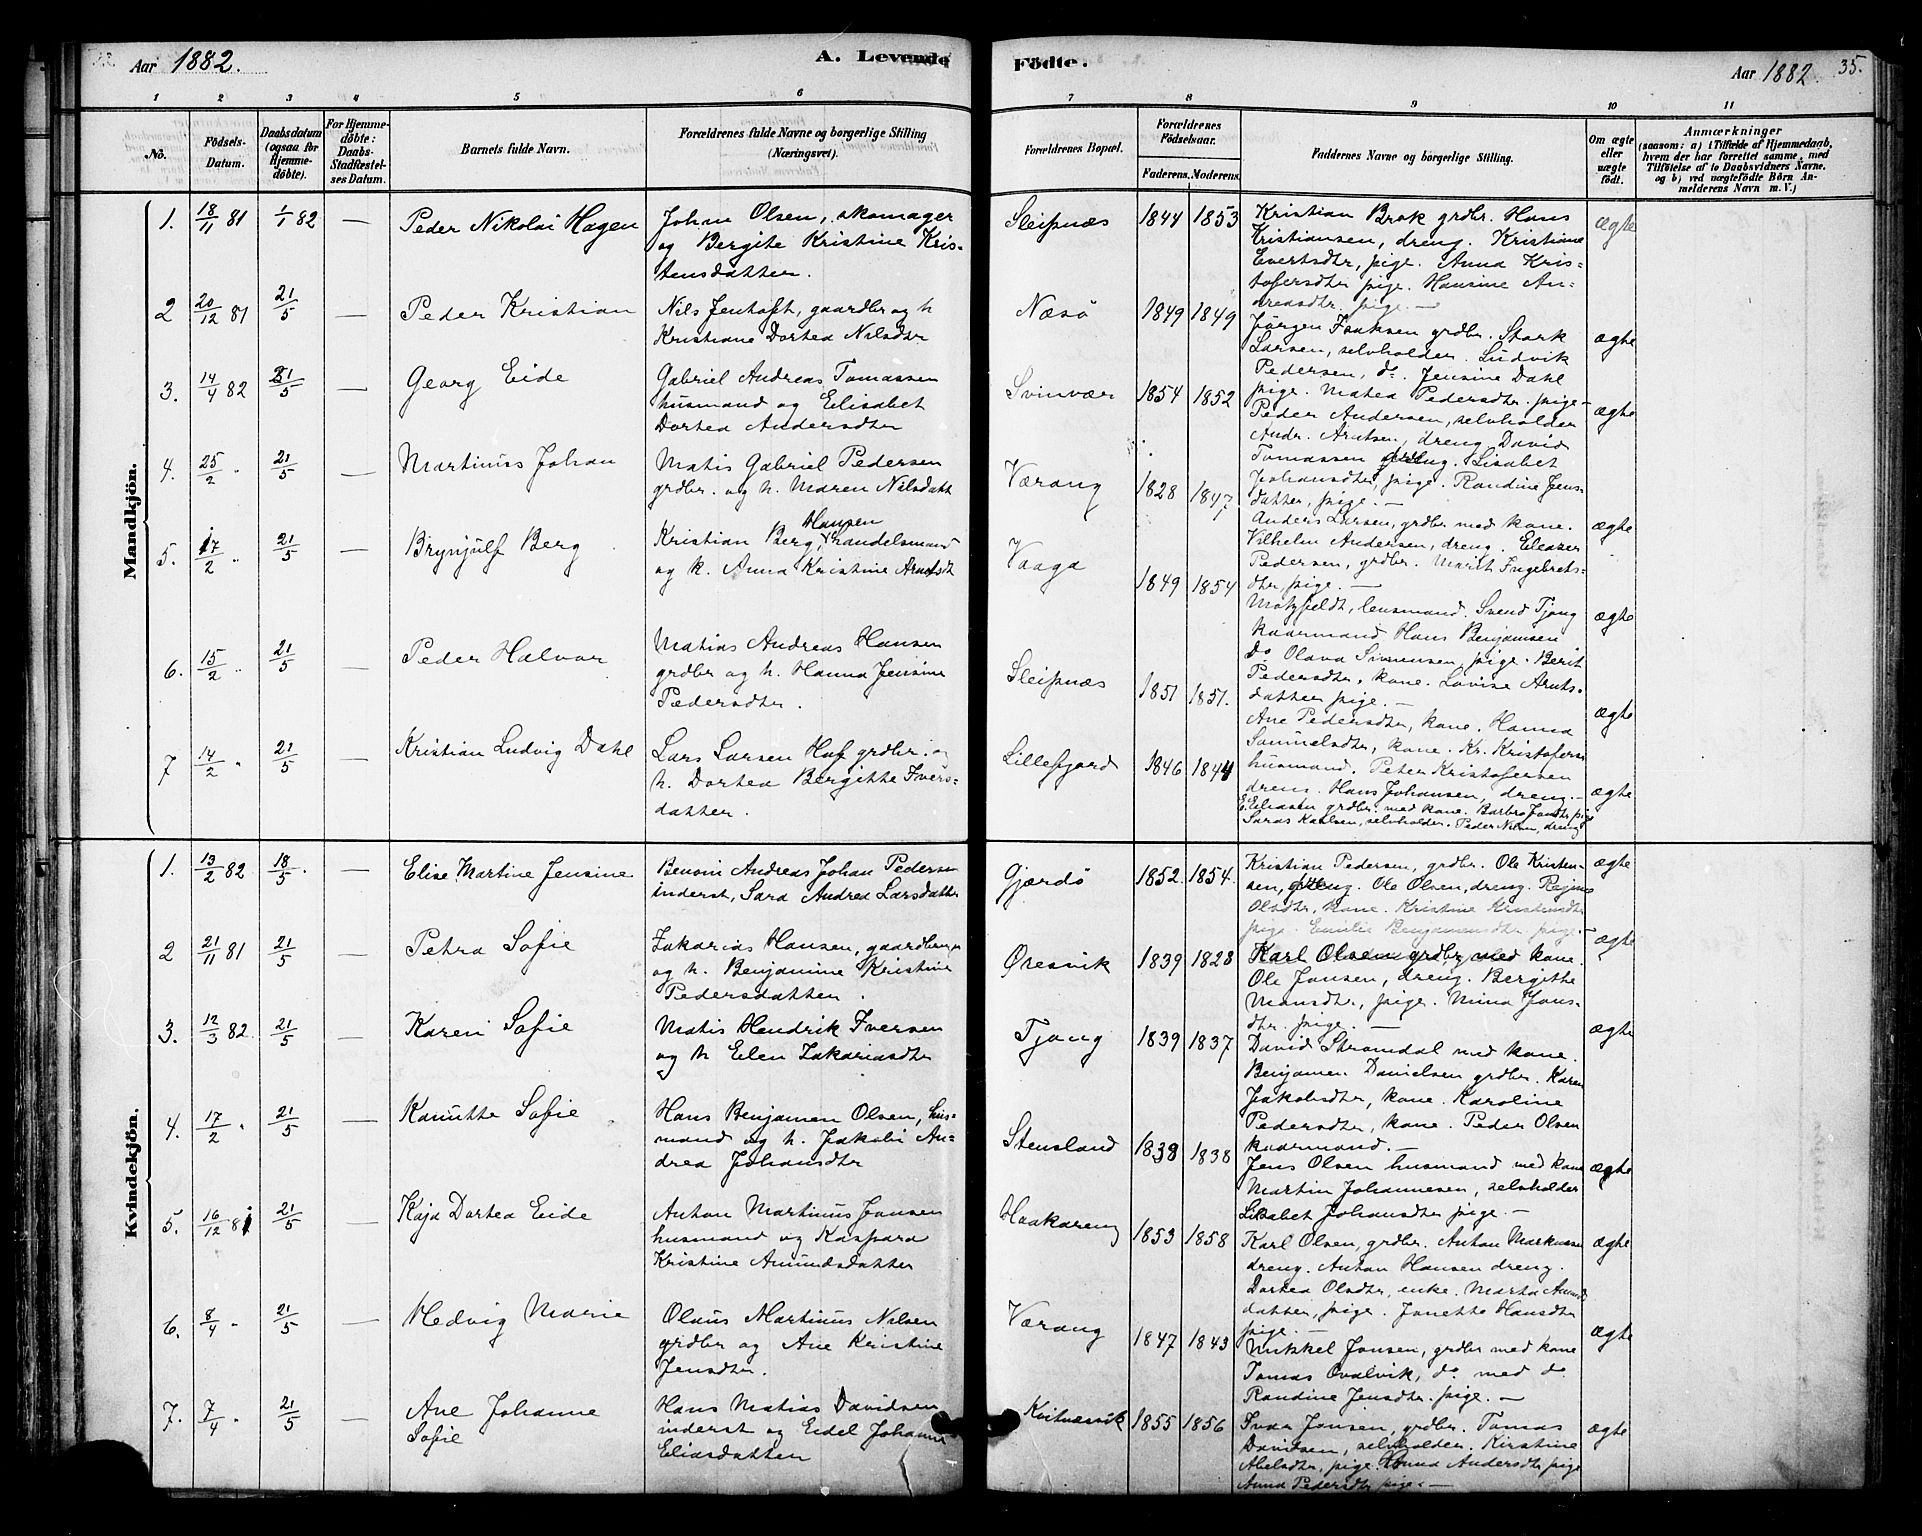 Aar 1882.
A. Levende
Födte.
Aar 1882.
35.
1 2 3 4 5 6 7 8 9 10 11
No.
Födsels-
Datum.
Daabsdatum
(ogsaa for
Hjemme-
döbte).
For Hjemme-
döbte:
Daabs-
Stadfæstel-
ses Datum.
Barnets fulde Navn.
Forældrenes fulde Navne og borgerlige Stilling
(Næringsvei).
Forældrenes Bopæl.
Forældrenes
Födselsaar.
Faderens. Moderens.
Faddernes Navne og borgerlige Stilling.
Om ægte
eller
uægte
födt.
Anmærkninger
(saasom: a) i Tilfælde af Hjemmedaab,
hvem der har forrettet samme, med
Tilföielse af to Daabsvidners Navne.
og b) ved uægtefödte Börn An-
melderens Navn m. V.)
Mandkjön.
1. 18/11 81 1/1 82 — Peder Nikolai Hagen
Johan Olsen, skomager
og Bergite Kristine Kris-
tensdatter.
Sleipnæs 1844 1853
Kristian Brok grdbr. Hans
Kristiansen, dreng. Kristiane
Evertsdtr, pige. Anna Kris-
tofersdtr pige. Hansine An-
dreasdtr. pige. —
ægte
2 20/12 81 21/5 — Peder Kristian
Nils Jentoft, gaardbr og h
Kristiane Dortea Nilsdtr
Næsö 1849 1849
Jørgen Isaksen grdbr. Stark
Larsen, selvholder. Ludvik
Pedersen, do. Jensine Dahl
pige. Matea Pedersdtr. pige —
ægte
3. 14/4 82 21/5 — Georg Eide
Gabriel Andreas Tomassen
husmand og Elisabet
Dortea Andersdtr
Svinvær 1854 1852
Peder Andersen, selvholder
Andr. Arntsen, dreng David
Tomassen dreng. Lisabet
Johansdtr, pige. Randine Jens-
datter, pige. —
ægte
4. 25/2 " 21/5 — Martinus Johan
Matis Gabriel Pedersen
grdbr. og h. Maren Nilsdatt
Værang 1828 1847
Anders Larsen, grdbr med kone.
Vilhelm Andersen, dreng. Eleazer
Pedersen, grdbr. Marit Ingebrets-
dtr pige. —
ægte
5. 17/2 " 21/5 — Brynjulf Berg
Hansen
Kristian Berg, handelsmand
og h. Anna Kristine Arntsdt
Vaaga 1849 1854
Motzfeldt, lensmand. Svend Tjong
kaarmand. Hans Benjamsen
Do Olava Simensen, pige. Berit
Pedersdtr, kone. Lovise Arnts-
datter pige. —
ægte
6. 15/2 " 21/5 — Peder Halvor
Matias Andreas Hansen
grdbr og h. Hanna Jensine
Pedersdtr.
Sleipnæs 1851 1851.
Ane Pedersdtr, kone. Hanna
Samuelsdtr, kone. Kr. Kristofersen
husmand. Peter Kristofersen
dreng. Hans Johansen, dreng. —
ægte
7 14/2 " 21/5 — Kristian Ludvig Dahl
Lars Larsen Hof grdbr. og
h. Dortea Bergitte Ivers-
datter.
Lillefjord 1846 1844
E. Eliasen grdbr. med kone. Barbro Jonsdtr pige
Saras Karlsen, selvholder. Peder Nilsen, dreng
ægte
Kvindekjön.
1. 13/2 82 18/5. — Elise Martine Jensine
Benoni Andreas Johan Pedersen
inderst, Sara Andrea Larsdatter
Gjærdö 1852. 1854.
Kristian Pedersen, grdbr. Ole Kristen-
sen, dreng. Ole Olsen, dreng. Regine
Olsdtr, kone. Kristine Kristensdtr
pige. Emilie Benjamensdtr pige. —
ægte
2 21/11 81 21/5 — Petra Sofie
Zakarias Hansen, gaardbruger
og h. Benjamine Kristine
Pedersdatter.
Øresvik 1839 1828
Karl Olsen grdbr med kone.
Ole Jonsen, dreng. Bergitte
Monsdtr, pige. Mina Jons-
dtr. pige. —
ægte
3. 12/3 82. 21/5 — Karen Sofie
Matis Hendrik Iversen
og h Elen Zakariasdtr
Tjong 1839 1837
David Strømdal med kone.
Benjamen Danielsen grdbr. Karen
Jakobsdtr, kone. Karoline
Pedersdtr, kone. Peder Olsen
kaarmand. —
ægte
4. 17/2 " 21/5 — Kanutte Sofie
Hans Benjamen Olsen, hus-
mand og h. Jakobi An-
drea Johansdtr
Stensland 1838 1838
Jens Olsen husmand med kone
Martin Johannesen, selvholder
Lisabet Johansdtr pige. —
ægte
5. 16/12 81 21/5 — Kaja Dortea Eide
Anton Martinus Jonsen
husmand og Kaspara
Kristine Amundsdatter
Haakareng 1853 1858
Karl Olsen, grdbr. Anton Markussen
dreng. Anton Hansen dreng.
Dortea Olsdtr, enke. Marta Amunds
datter, pige. Jonette Hansdtr
pige. —
ægte
6. 8/4 " 21/5 — Hedvig Marie
Olaus Martinus Nilsen
grdbr og Ane Kristine
Jensdtr.
Værang 1847 1843
Mikkel Jonsen, grdbr med kone
Tomas Kvalvik, do med do
Randine Jensdtr. pige. —
ægte
7. 7/4 " 21/5 — Ane Johanne
Sofie
Hans Matias Davidsen
inderst og Eidel Johanne
Eliasdatter
Kvitnæsvik 1855 1856
Ivar Jonsen, grdbr. Tomas
Davidsen, selvholder. Kirstine
Abelsdtr, pige. Anna Andersdtr pige
Anna Pedersdtr pige. —
ægte